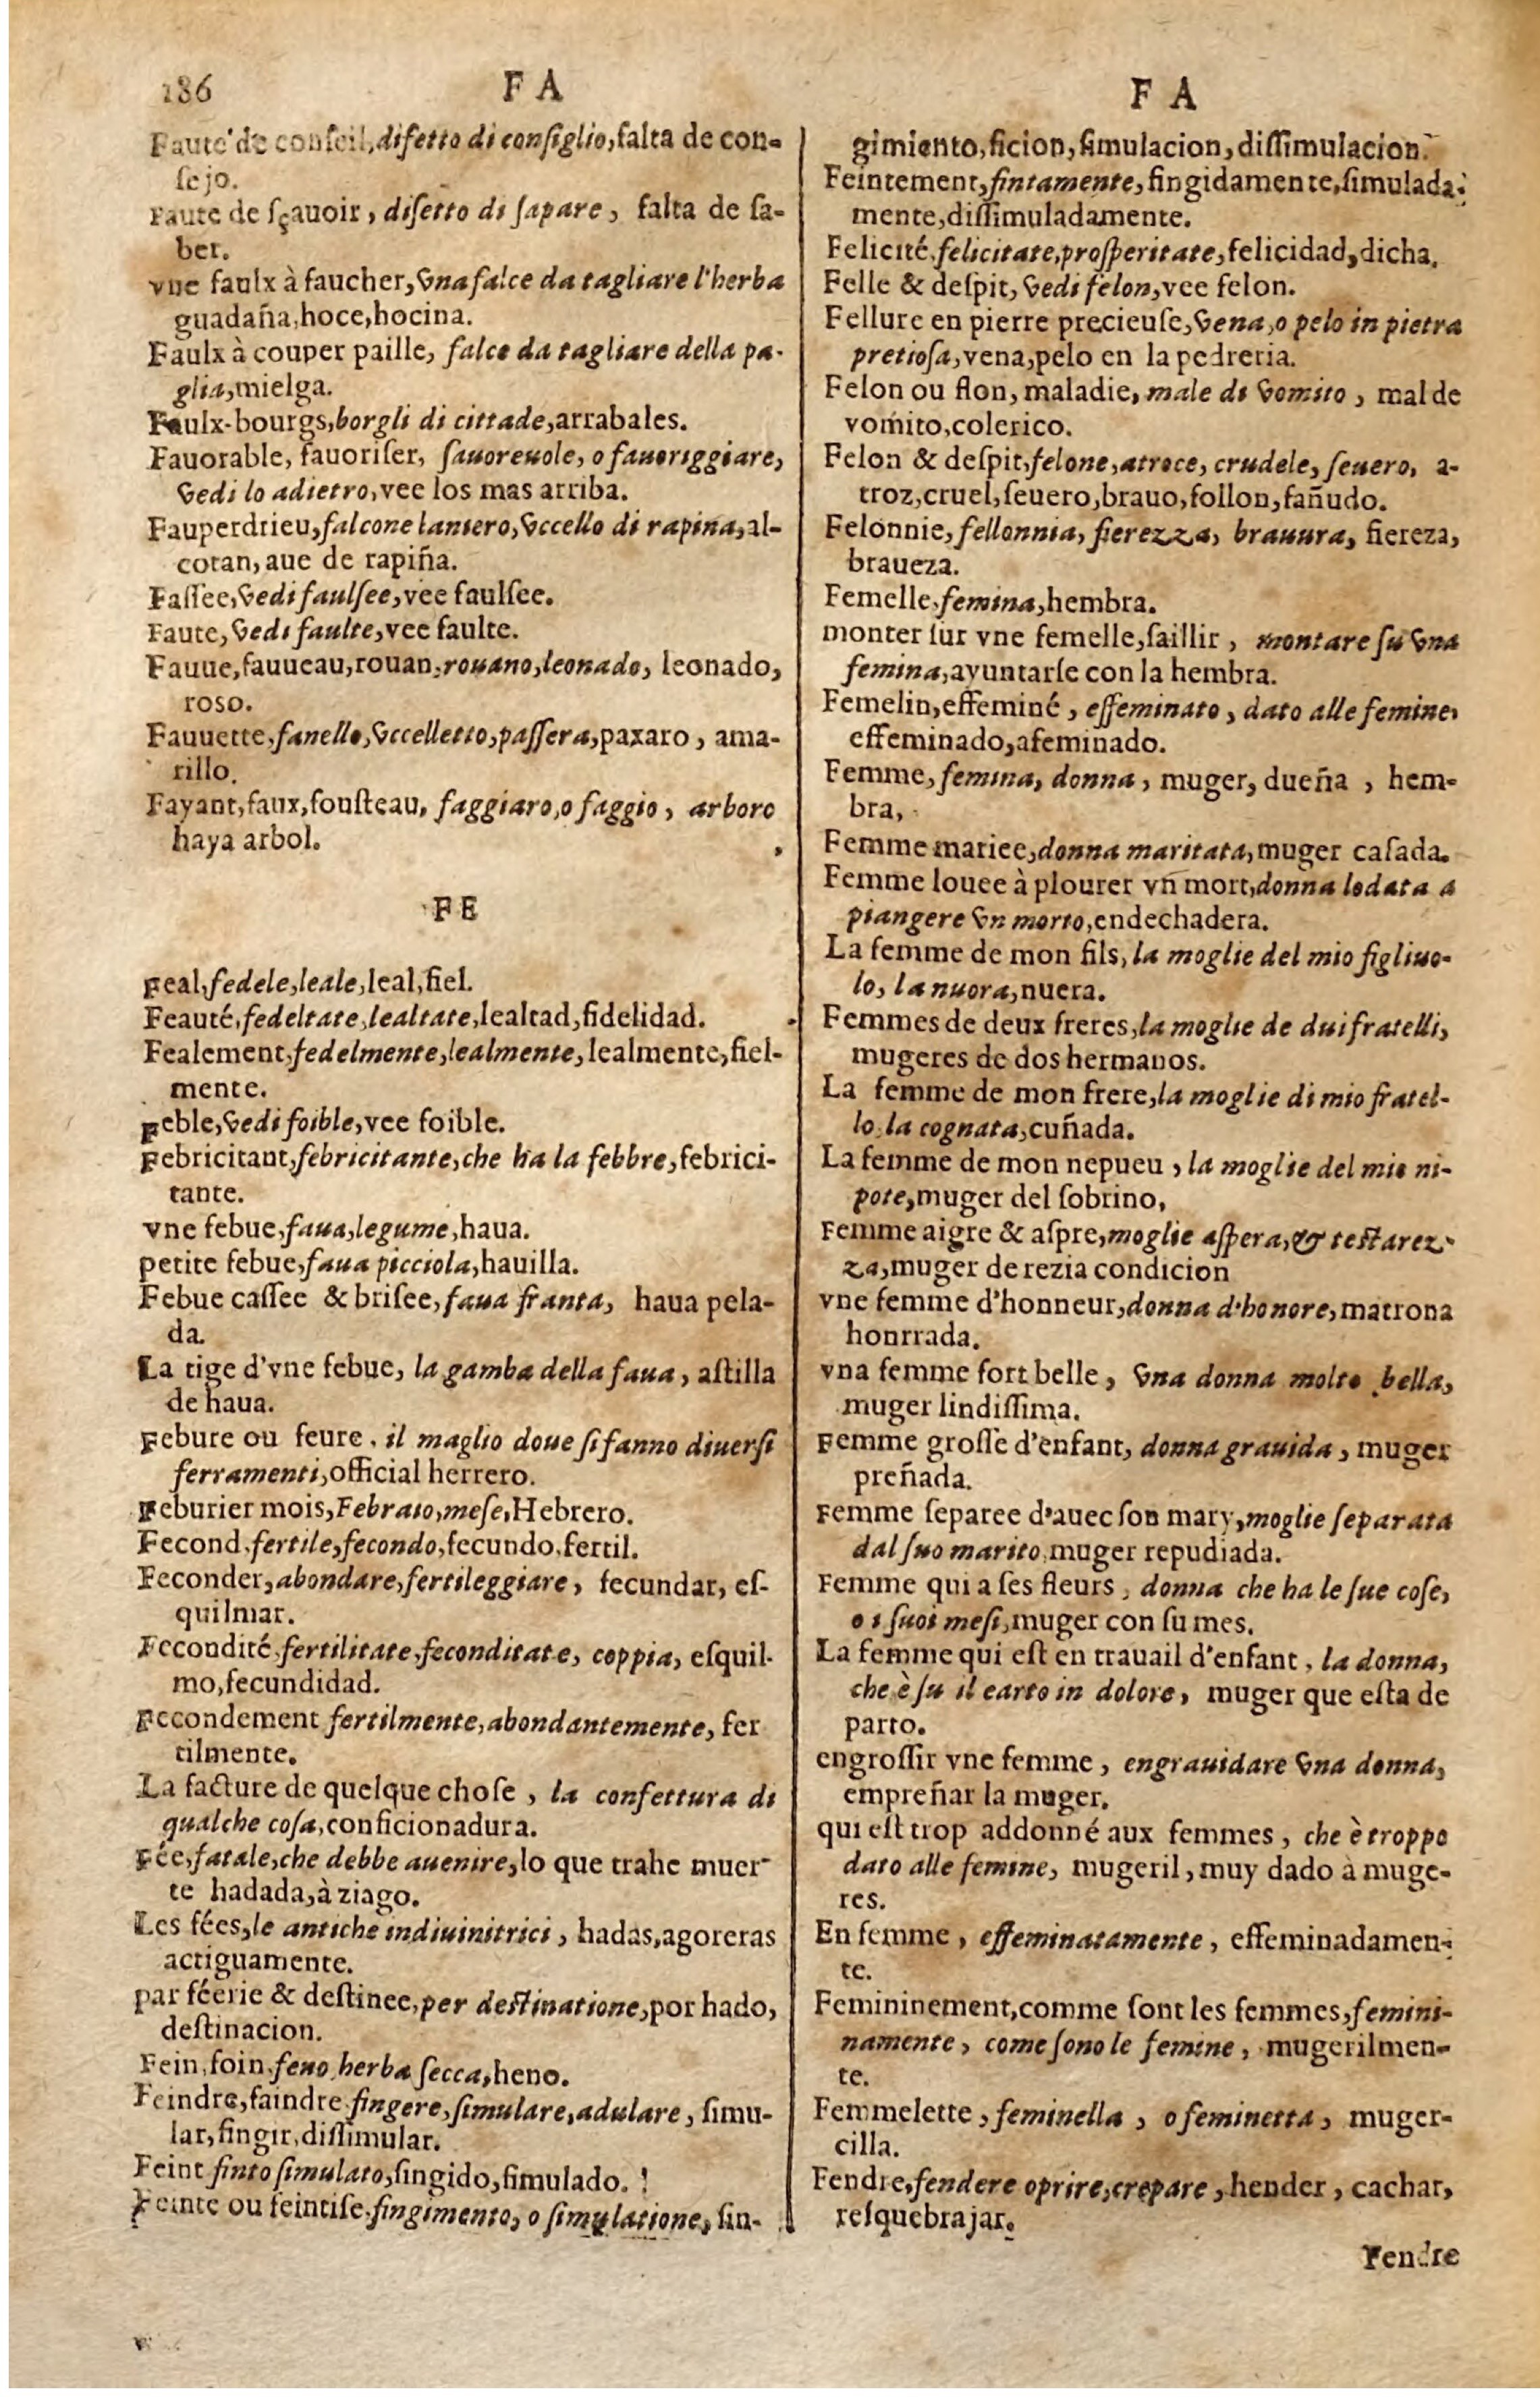 186
F A
Faute de conſeil, difetto di conſiglio, falta de con-
ſejo.
Faute de ſçauoir, difetto di ſapare, falta de ſa-
ber.
vne faulx à faucher, vna falce da tagliare l'herba
guadaña, hoce, hocina.
Faulx à couper paille, falce da tagliare della pa-
glia, mielga.
Faulx-bourgs, borgli di cittade, arrabales.
Fauorable, fauoriſer, fauoreuole, o fauoriggiare,
vedi lo adietro, vee los mas arriba.
Fauperdrieu, falcone laniero, vccello di rapina, al-
cotan, aue de rapiña.
Faſſee, vedi faulſee, vee faulſee.
Faute, vedi faulte, vee faulte.
Fauue, fauueau, rouan, rouano, leonado, leonado,
roso.
Fauuette, fanello, vccelletto, paſſera, paxaro, ama-
rillo.
Fayant, faux, fouſteau, faggiaro, o faggio, arbore
haya arbol.
F E
Feal, fedele, leale, leal, fiel.
Feauté, fedeltate, lealtate, lealtad, fidelidad.
Fealement, fedelmente, lealmente, lealmente, fiel-
mente.
Feble, vedi foible, vee foible.
Febricitant, febricitante, che ha la febbre, febrici-
tante.
vne febue, faua, legume, haua.
petite febue, faua picciola, hauilla.
Febue caſſee & briſee, faua franta, haua pela-
da.
La tige d'vne febue, la gamba della faua, aſtilla
de haua.
Febure ou feure, il maglio doue ſi fanno diuerſi
ferramenti, official herrero.
Feburier mois, Febraio, meſe, Hebrero.
Fecond, fertile, fecondo, fecundo, fertil.
Feconder, abondare, fertileggiare, fecundar, eſ-
quilmar.
Fecondité, fertilitate, feconditate, coppia, eſquil-
mo, fecundidad.
Fecondement fertilmente, abondantemente, fer
tilmente.
La facture de quelque choſe, la confettura di
qualche coſa, conficionadura.
Fée, fatale, che debbe auenire, lo que trahe muer-
te hadada, à ziago.
Les fées, le antiche indiuinitrici, hadas, agoreras
actiguamente.
par féerie & deſtinee, per deſtinatione, por hado,
deſtinacion.
Fein, foin, feno, herba ſecca, heno.
Feindre, faindre, fingere, ſimulare, adulare, ſimu-
lar, fingir, diſſimular.
Feint finto ſimulato, fingido, ſimulado.
Feinte ou feintiſe, fingimento, o ſimulatione, fin-
F A
gimiento, ficion, ſimulacion, diſſimulacion.
Feintement, fintamente, fingidamente, ſimulada-
mente, diſſimuladamente.
Felicité, felicitate, proſperitate, felicidad, dicha.
Felle & deſpit, vedi felon, vee felon.
Fellure en pierre precieuſe, vena, o pelo in pietra
pretioſa, vena, pelo en la pedreria.
Felon ou flon, maladie, male di vomito, mal de
vomito, colerico.
Felon & deſpit, felone, atroce, crudele, ſeuero, a-
troz, cruel, ſeuero, brauo, follon, ſañudo.
Felonnie, fellonnia, fierezza, brauura, fiereza,
braueza.
Femelle, femina, hembra.
monter ſur vne femelle, ſaillir, montare ſu vna
femina, ayuntarſe con la hembra.
Femelin, effeminé, effeminato, dato alle femine,
effeminado, afeminado.
Femme, femina, donna, muger, dueña, hem-
bra,
Femme mariee, donna maritata, muger caſada.
Femme louee à plourer vn mort, donna lodata a
piangere vn morto, endechadera.
La femme de mon fils, la moglie del mio figliuo-
lo, la nuora, nuera.
Femmes de deux freres, la moglie de dui fratelli,
mugeres de dos hermanos.
La femme de mon frere, la moglie di mio fratel-
lo, la cognata, cuñada.
La femme de mon nepueu, la moglie del mio ni-
pote, muger del ſobrino,
Femme aigre & aſpre, moglie aſpera, & teſtarez-
za, muger de rezia condicion
vne femme d'honneur, donna d'honore, matrona
honrrada.
vna femme fort belle, vna donna molto bella,
muger lindiſſima.
Femme groſſe d'enfant, donna grauida, muger
preñada.
Femme ſeparee d'auec ſon mary, moglie ſeparata
dal ſuo marito, muger repudiada.
Femme qui a ſes fleurs, donna che ha le ſue coſe,
o i ſuoi meſi, muger con ſu mes.
La femme qui eſt en trauail d'enfant, la donna,
che è ſu il earto in dolore, muger que eſta de
parto.
engroſſir vne femme, engrauidare vna donna,
empreñar la muger.
qui eſt trop addonné aux femmes, che è troppo
dato alle femine, mugeril, muy dado à muge-
res.
En femme, effeminatamente, effeminadamen-
te.
Femininement, comme ſont les femmes, femini-
namente, come ſono le femine, mugerilmen-
te.
Femmelette, feminella, o feminetta, muger-
cilla.
Fendre, fendere oprire, crepare, hender, cachar,
reſquebrajar.
Fendre